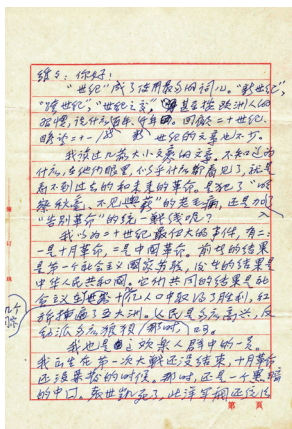 维之：你好！
“世纪”成了使用最多的词儿。“新世纪”，
“跨世纪”，“世纪之交”，甚至按欧洲人的
习惯，说什么百年、千年。回顾二十世纪、
瞻望二十一世纪的文章也不少。
我读过几篇大小文豪的文章。不知道为
什么，在他们那里，似乎什么都看见了，就是
看不到过去的和未来的革命。是犯了“明
察秋毫，不见舆薪”的老毛病，还是加入
“告别革命”的统一战线呢？
我以为二十世纪最伟大的事件，有二：
一是十月革命，二是中国革命。前者的结果
是第一个社会主义国家苏联，后者的结果是
中华人民共和国。它们共同的结果是社
会主义在世界十几亿人口中取得了胜利，红
旗插遍了五大洲。人民是多么高兴，反
动派多么狼狈
我也是这欢乐人群中的一员。
我出生在第一次大战还没结束，十月革命
还没爆发的时候。那时，还是一个黑暗
的中国。袁世凯死了，北洋军阀还在
第 页